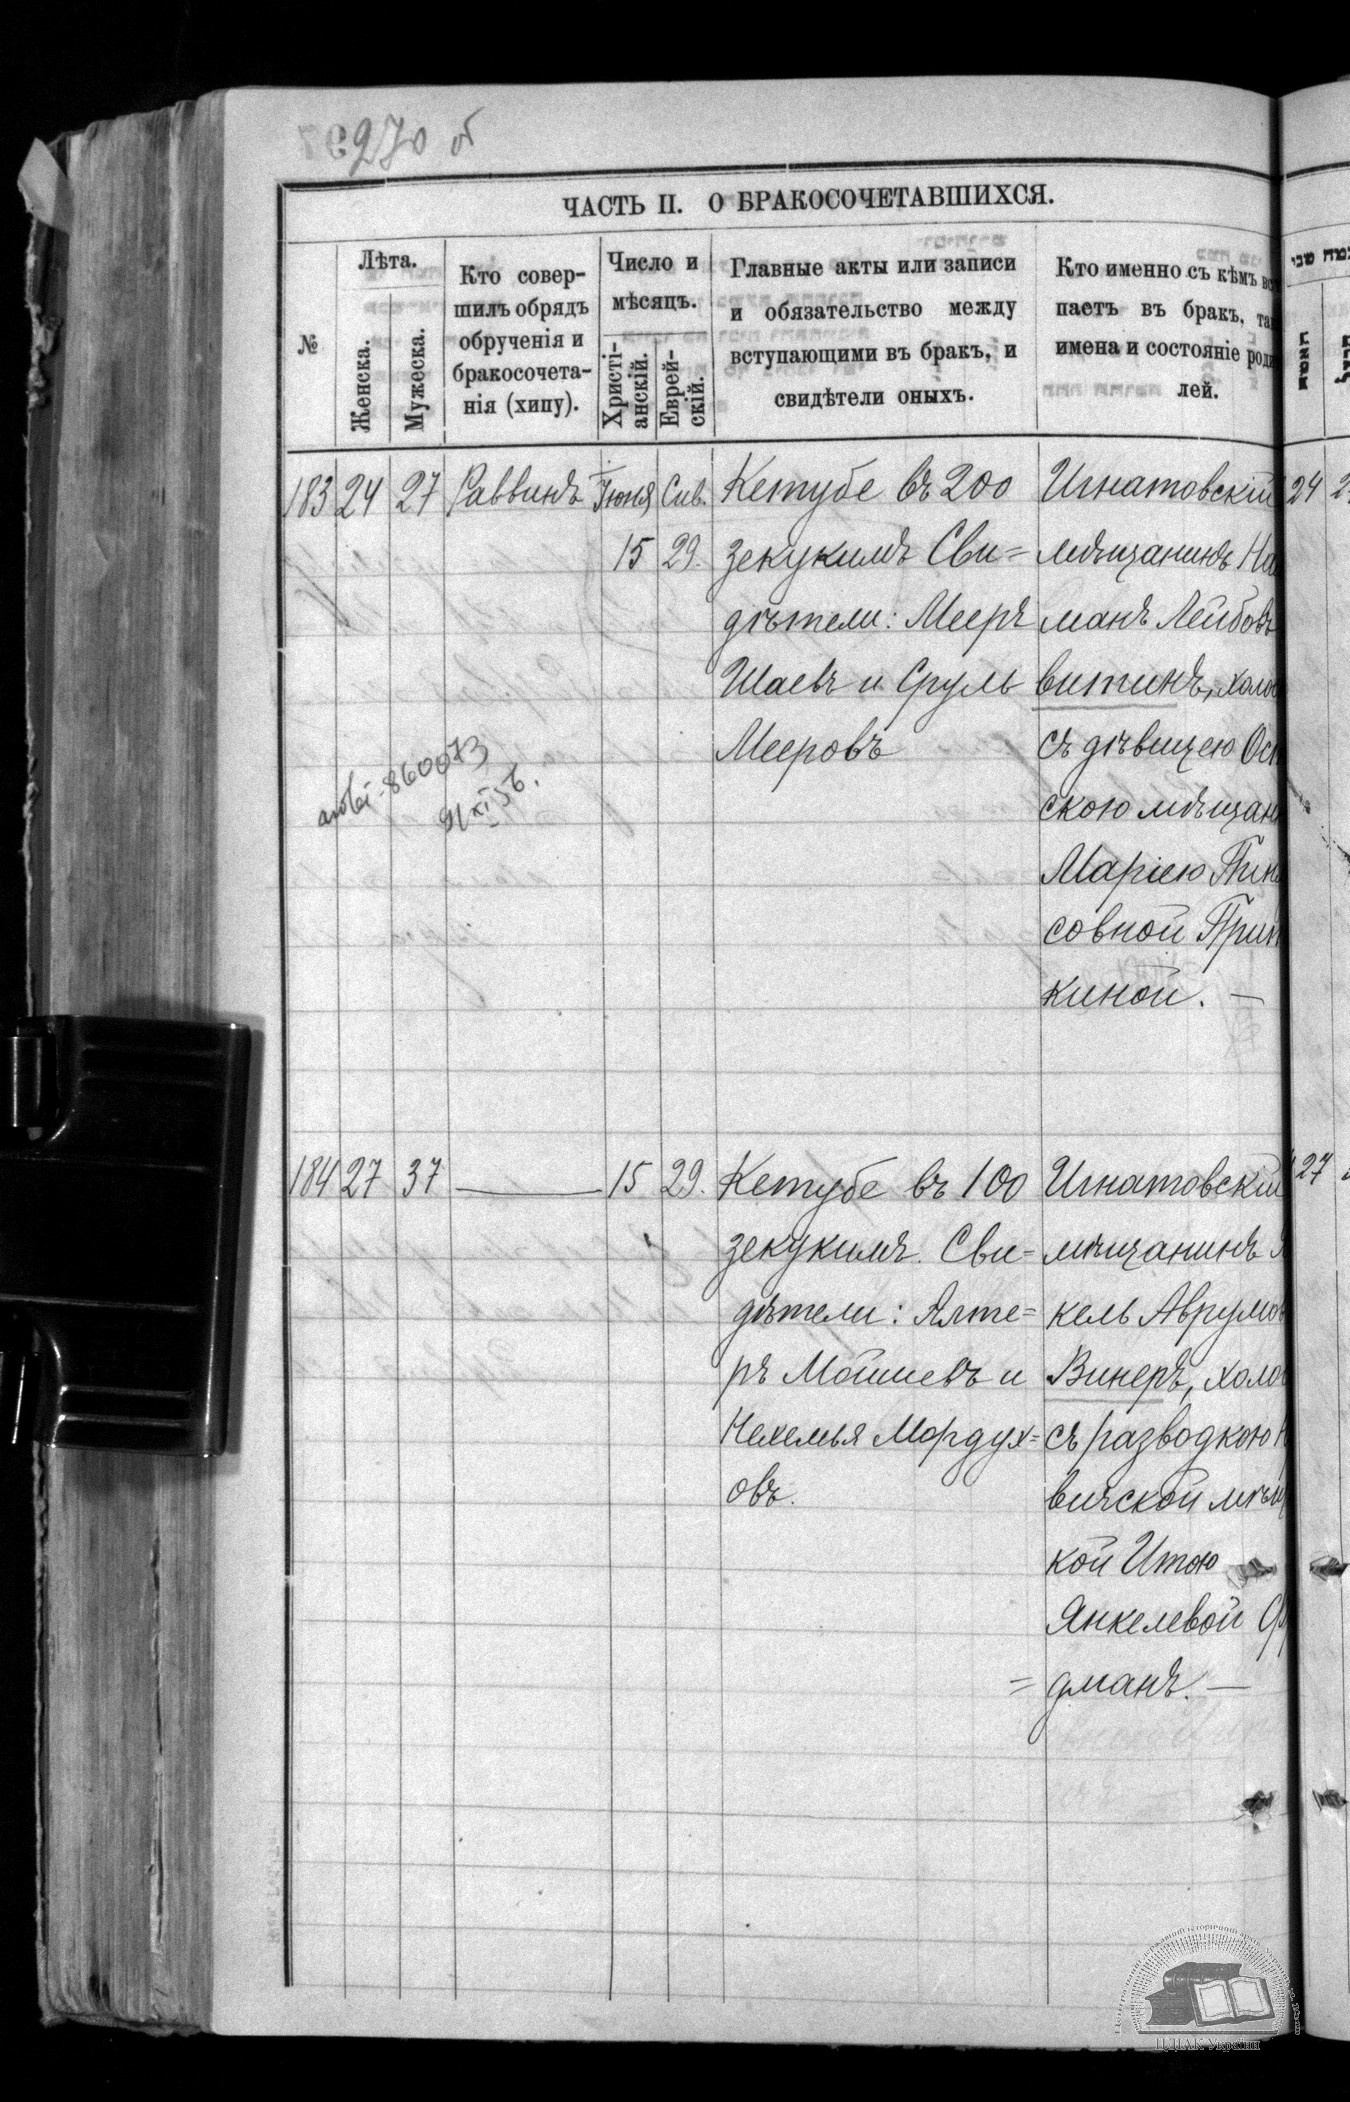 270 об
ЧАСТЬ II. О БРАКОСОЧЕТАВШИХСЯ.
№
Лѣта.
Женска.
Мужеска.
Кто совер-
шилъ обрядъ
обрученія и
бракосочета-
нія (хипу).
Число и
мѣсяцъ.
Христі-
анскій.
Еврей-
скій.
Главные акты или записи
и обязательство между
вступающими въ бракъ, и
свидѣтели оныхъ.
Кто именно съ кѣмъ вс
паетъ въ бракъ, так
имена и состояніе роди
лей.
183 24 27 Раввинъ Іюня Сив.
15 29.
Кетубе въ 200
зекукимъ Сви=
дѣтели: Мееръ
Шаевъ и Сруль
Мееровъ
Игнатовскій
мѣщанинъ На
манъ Лейбовъ
витинъ, холос
съ дѣвицею Ос
скою мѣщан
Маріею Пин
совной Прин
киной. —
860073
184 27 37 — 15 29.
Кетубе въ 100
зекукимъ. Сви=
дѣтели: Алте=
ръ Мошиевъ и
Нехемья Мордух=
овъ.
Игнатовскій
мѣщанинъ Я
кель Аврумов
Винеръ, холос
съ разводкою
вичской мѣщ
кой Итою
Янкелевой Фр
= дманъ. —
24
27
ЦДІАК України